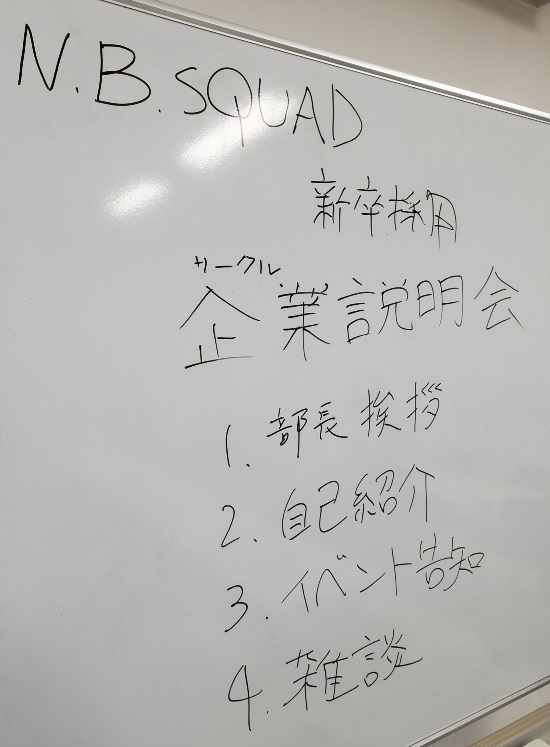 N.B.SQUAD
新卒採用
サークル
企業説明会
1. 部長挨拶
2. 自己紹介
3. イベント告知
4. 雑談